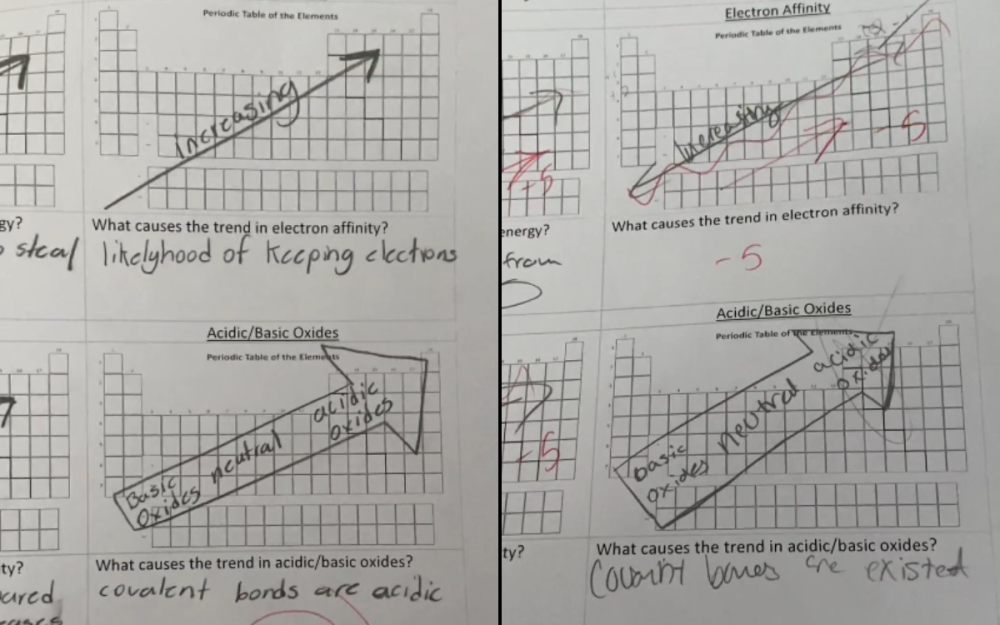 Periodic Table of the Elements
increasing
gy?
What causes the trend in electron affinity?
steal
likelyhood of keeping elections
Acidic/Basic Oxides
Periodic Table of the Elements
Basic
oxides
neutral
acidic
oxides
ty?
What causes the trend in acidic/basic oxides?
ured
covalent bonds are acidic
Electron Affinity
Periodic Table of the Elements
Increasing
-5
-5
energy?
What causes the trend in electron affinity?
from
-5
Acidic/Basic Oxides
Periodic Table of the Elements
basic
oxides
neutral
acidic
oxides
-5
ty?
What causes the trend in acidic/basic oxides?
are existed